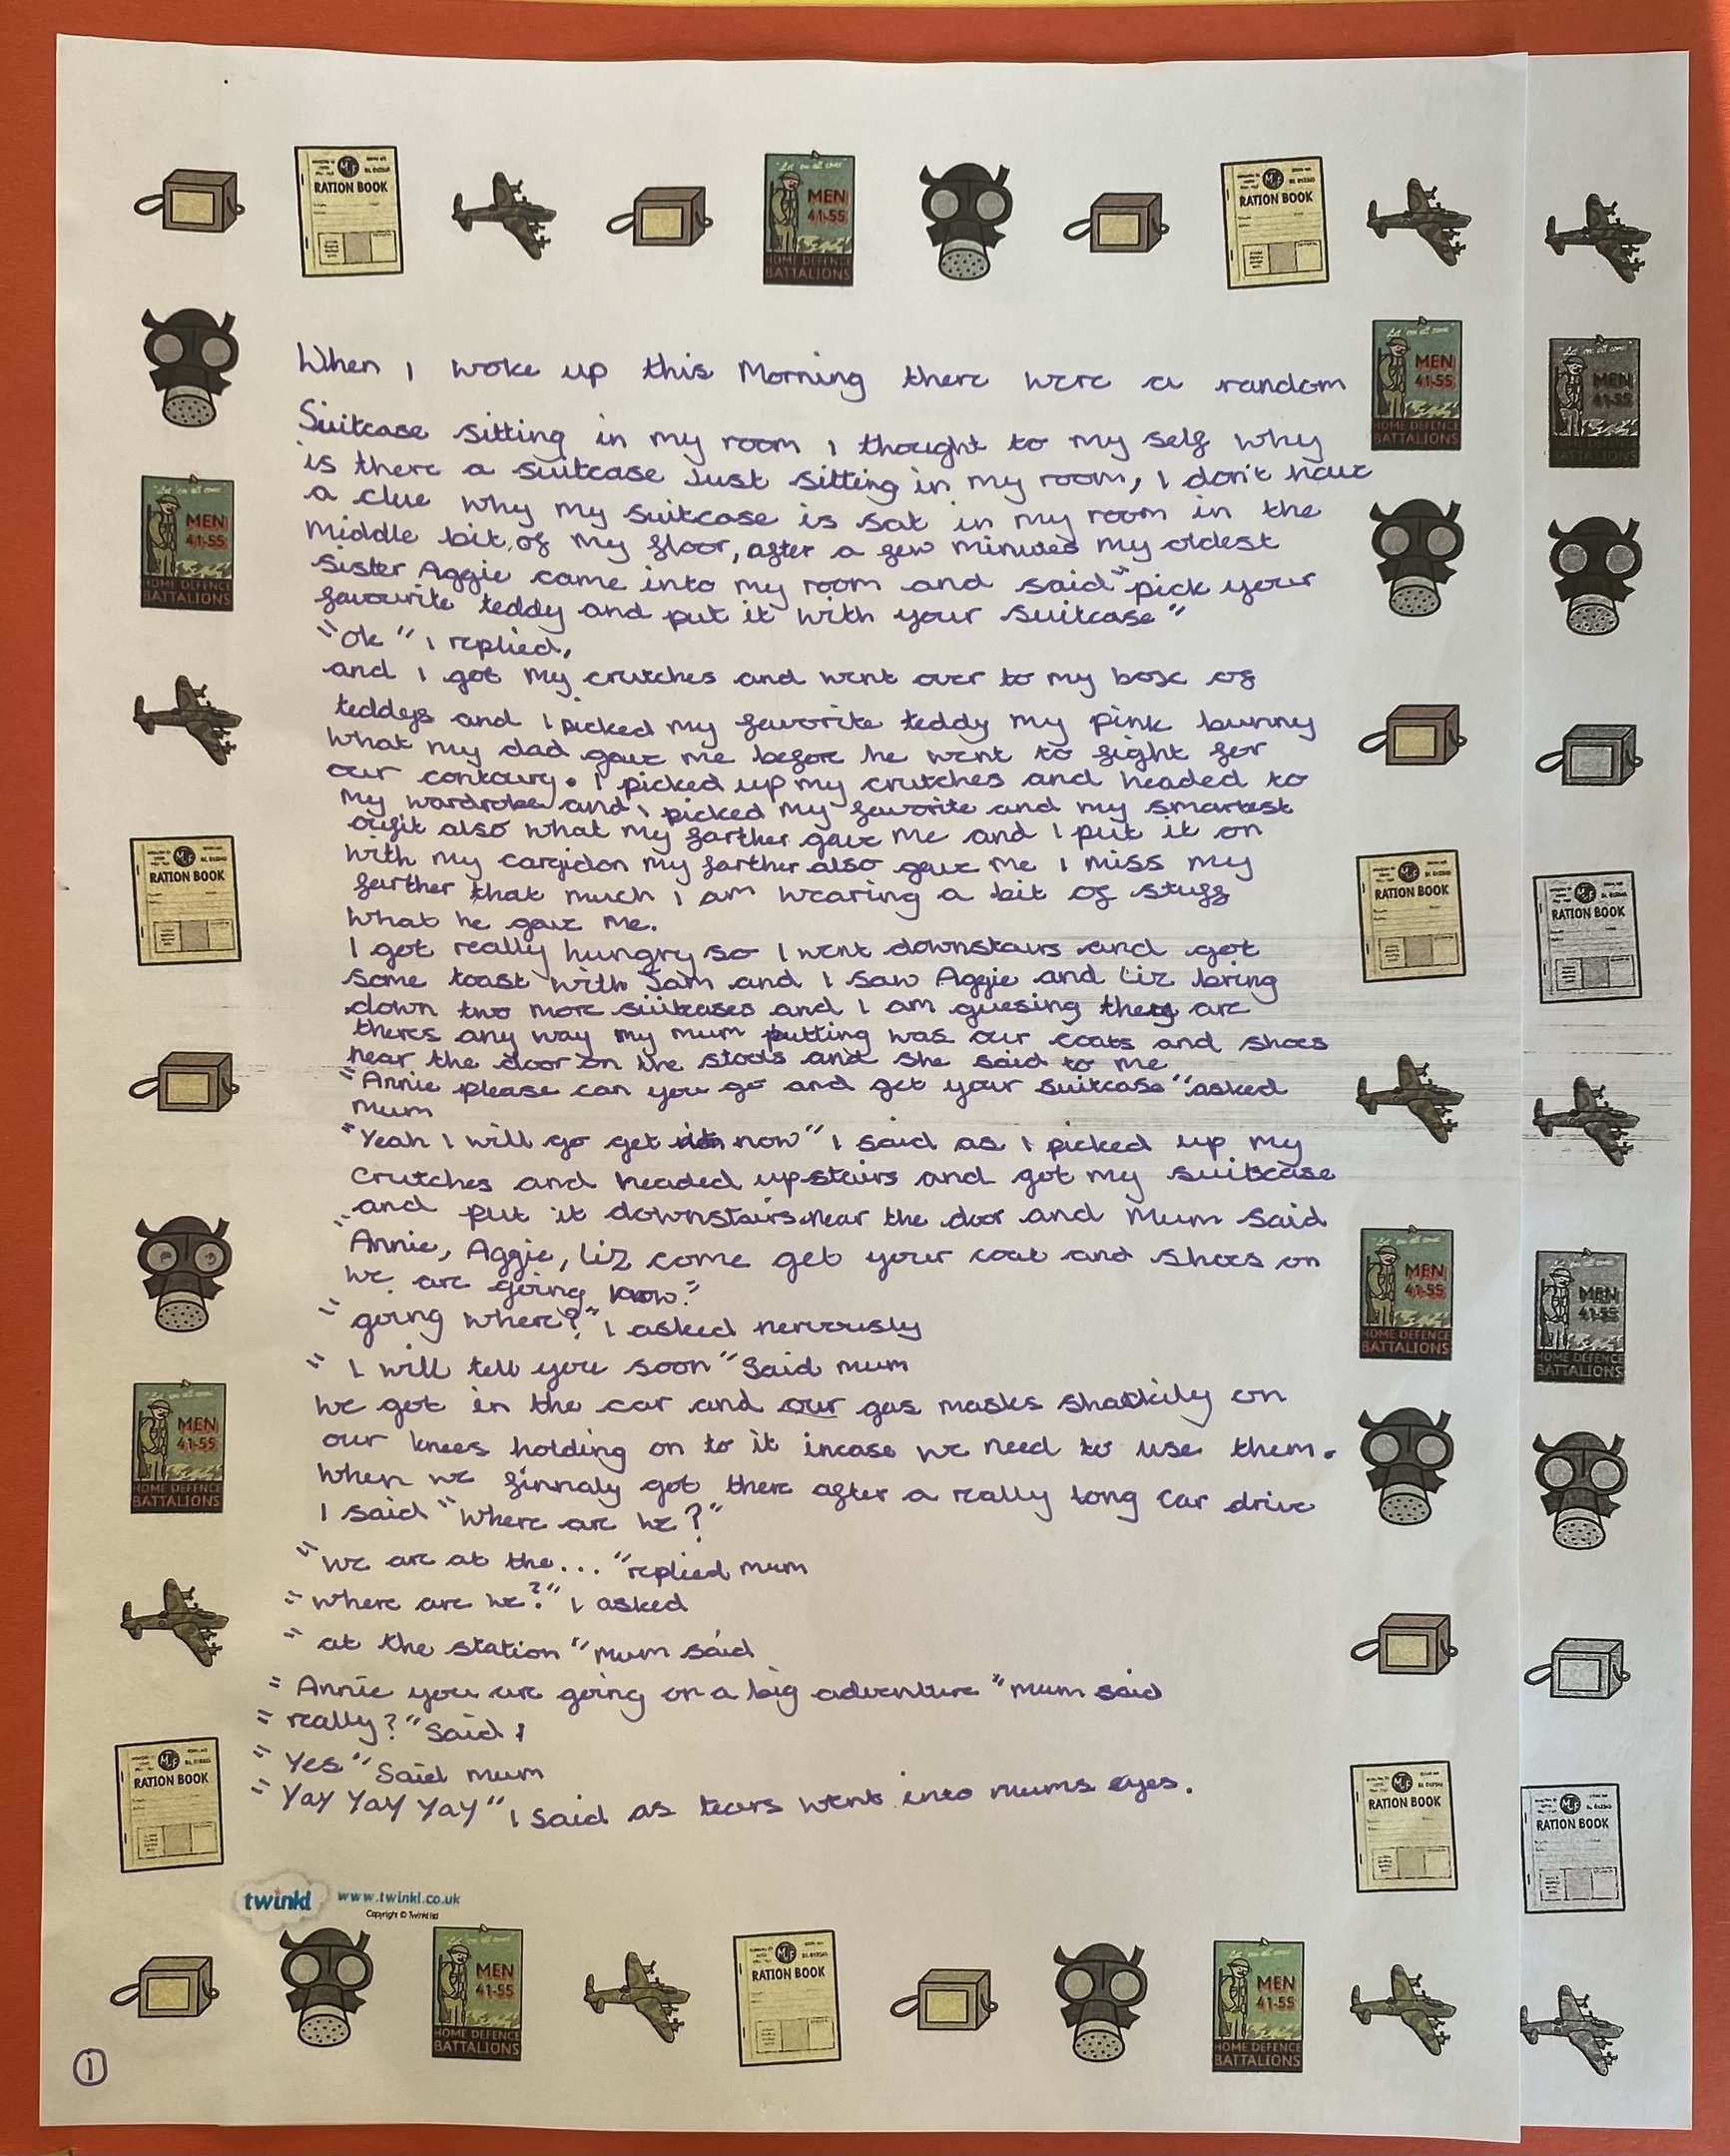 RATION BOOK
MEN
41-55
HOME DEFENCE
BATTALIONS
RATION BOOK
When I woke up this Morning there were a random
Suitcase sitting in my room I thought to my self why
is there a suitcase Just sitting in my room, I don't have
a clue why my suitcase is sat in my room in the
Middle bit of my floor, after a few minutes my oldest
sister Aggie came into my room and said "pick your
favourite teddy and put it with your suitcase"
"Ok" I replied,
and I got my crutches and went over to my box of
teddys and I picked my favorite teddy my pink bunny
what my dad gave me before he went to fight for
our contoury. I picked up my crutches and headed to
My wardrobe and I picked my favorite and my smartest
oufit also what my farther gave me and I put it on
with my cargidon my farther also gave me I miss my
farther that much I am wearing a bit of stuff
what he gave me.
I got really hungry so I went downstairs and got
some toast with Jam and I saw Aggie and Liz bring
down two more suitcases and I am guesing they are
theres any way my mum putting was our coats and shoes
near the door on the stools and she said to me
"Annie please can you go and get your suitcase" asked
mum
"Yeah I will go get now" I said as I picked up my
crutches and headed upstairs and got my suitcase
and put it downstairs near the door and Mum said
"Annie, Aggie, Liz come get your coat and shoes on
we are going know."
"going where?" I asked nervously
"I will tell you soon" Said mum
we got in the car and our gas masks shakily on
our knees holding on to it incase we need to use them.
when we finnaly got there after a really long car drive
I said "where are we?"
"we are at the..." replied mum
"where are we?" I asked
"at the station" mum said
"Annie you are going on a big adventure" mum said
"really?" Said I
"Yes" Said mum
"Yay Yay Yay" I said as tears went into mums eyes.
twinkl www.twinkl.co.uk
Copyright © Twinkl ltd
MEN
41-55
HOME DEFENCE
BATTALIONS
RATION BOOK
MEN
41-55
HOME DEFENCE
BATTALIONS
1
MEN
41-55
HOME DEFENCE
BATTALIONS
RATION BOOK
MEN
41-55
HOME DEFENCE
BATTALIONS
RATION BOOK
MEN
41-55
HOME DEFENCE
BATTALIONS
RATION BOOK
MEN
41-55
HOME DEFENCE
BATTALIONS
RATION BOOK
MEN
41-55
HOME DEFENCE
BATTALIONS
RATION BOOK
MEN
41-55
HOME DEFENCE
BATTALIONS
RATION BOOK